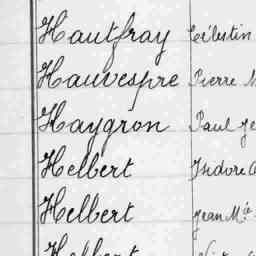 Hautfray Célestin
Hauvespre Pierre M
Haygron Paul Je
Helbert Isidore
Helbert Jean Mie
Helbert